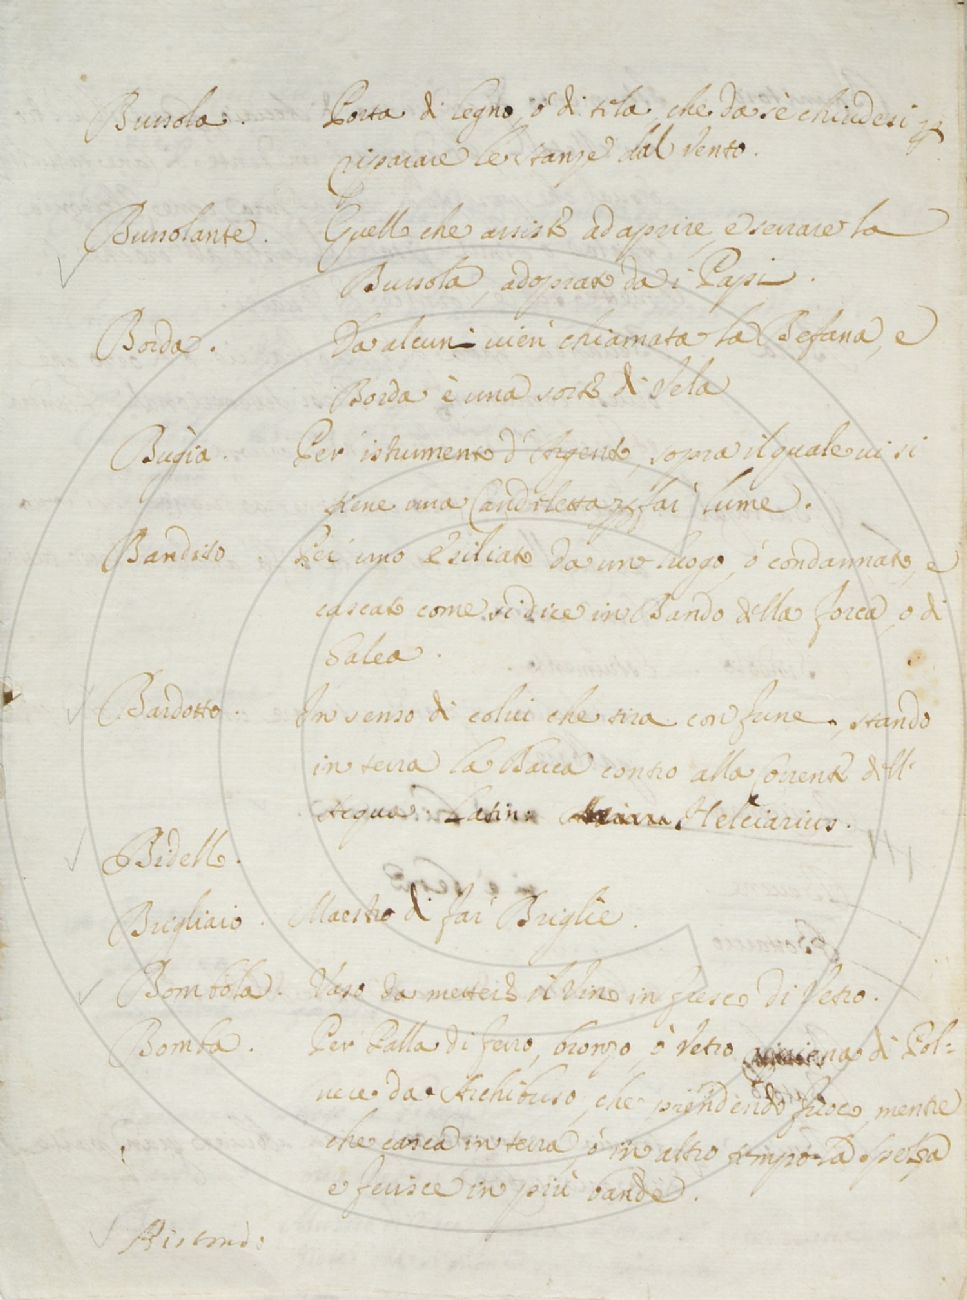 Bussola. Porta di legno, ò di tela, che da sè chiudesi p
riparare le stanze dal Vento.
Bussolante. Quello che assiste ad aprire, e serrare la
Bussola, adoprato da i Papi.
Borda. Da alcuni vien chiamata la Befana, e
Borda è una sorte di Vela
Bugia. Per istrumento d'Argento, sopra il quale vi si
tiene una Candeletta p far lume.
Bandito. Per uno esiliato da un luogo, ò condannato, e
cascato come si dice in Bando della forca, o di
Galea.
Bardotto. In senso di colui che tira con fune, stando
in terra la Barca contro alla Corrente dell'
Acqua. Latino Helciarius.
Bidello.
Brigliaio. Maestro di far Briglie.
Bombola. Vaso da mettere il Vino in fresco di Vetro.
Bomba. Per Palla di ferro, bronzo, ò Vetro piena di Pol=
vere da Archibuso, che prendendo fuoco, mentre
che casca in terra, ò in altro tempo la spezza
e ferisce in più bande.